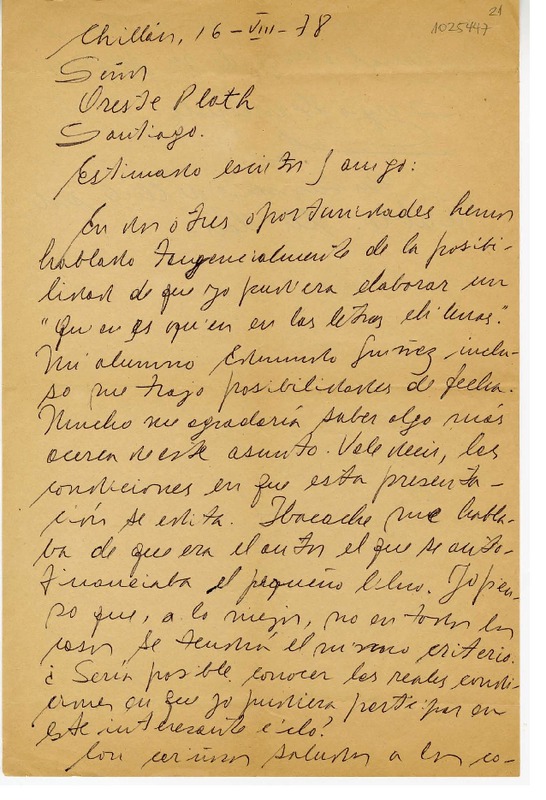 21
1025447
Chillán, 16-VIII-78
Señor
Oreste Plath
Santiago.
Estimado escritor y amigo:
En dos o tres oportunidades hemos
hablado tangencialmente de la posibi-
lidad de que yo pudiera elaborar un
"Quien es quien en las letras chilenas".
Mi alumno Edmundo inclu-
so me trajo posibilidades de fecha.
Mucho me agradaría saber algo más
acerca de este asunto. Vale decir, las
condiciones en que esta presenta-
ción se edita. Ibacache me habla-
ba de que era el autor el que se auto-
financiaba el pequeño libro. Yo pien-
so que, a lo mejor, no en todos los
casos se tendrá el mismo criterio.
¿Sería posible conocer las reales condi-
ciones en que yo pudiera participar en
este interesante ciclo?
Con cariñosos saludos a los co-